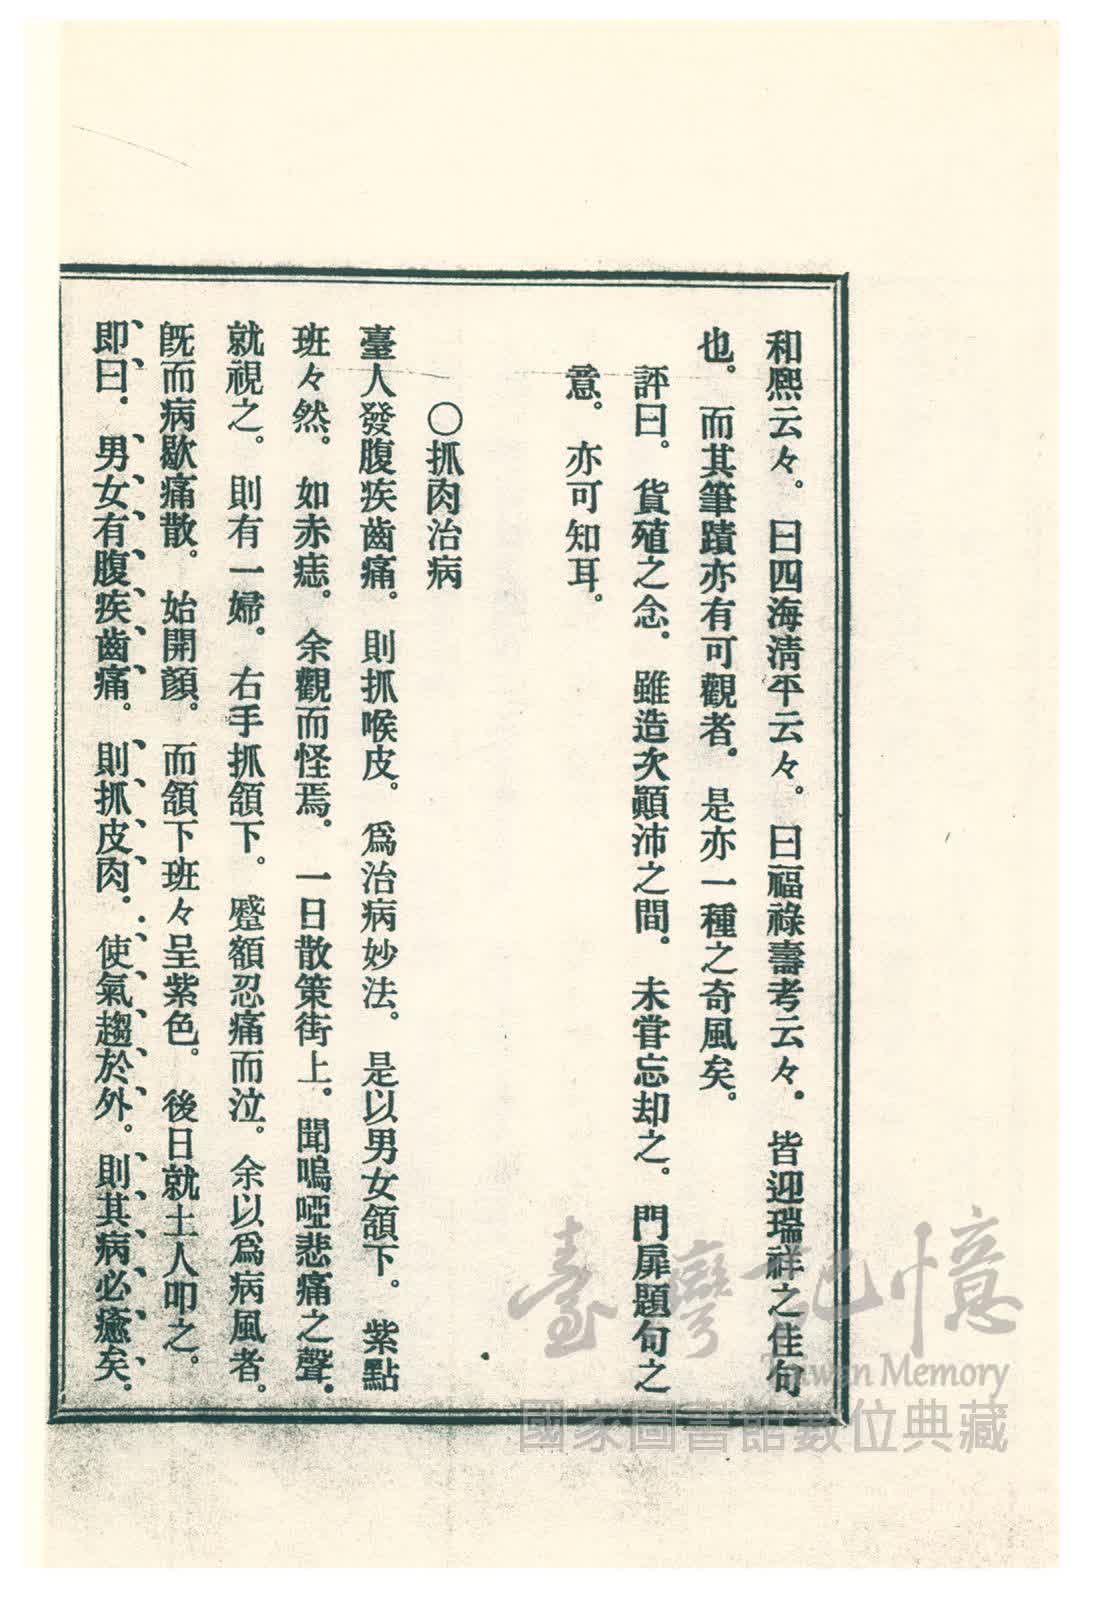 和熙云々。曰四海清平云々。曰福祿壽考云々。皆迎瑞祥之佳句
也。而其筆蹟亦有可觀者。是亦一種之奇風矣。
評曰。貨殖之念。雖造次顚沛之間。未甞忘却之。門扉題句之
意。亦可知耳。
〇抓肉治病
臺人發腹疾齒痛。則抓喉皮。爲治病妙法。是以男女頷下。紫點
班々然。如赤痣。余觀而怪焉。一日散策街上。聞嗚啞悲痛之聲。
就視之。則有一婦。右手抓頷下。蹙額忍痛而泣。余以爲病風者。
旣而病歇痛散。始開顏。而頷下班々呈紫色。後日就土人叩之。
即曰。男女有腹疾齒痛。則抓皮肉。使氣趨於外。則其病必癒矣。
臺灣記憶
Taiwan Memory
國家圖書館數位典藏